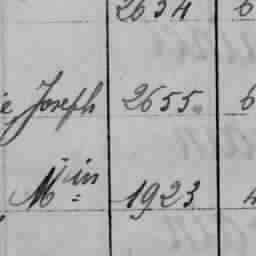 2634 6
e Joseph 2655 6
M in 1923 4